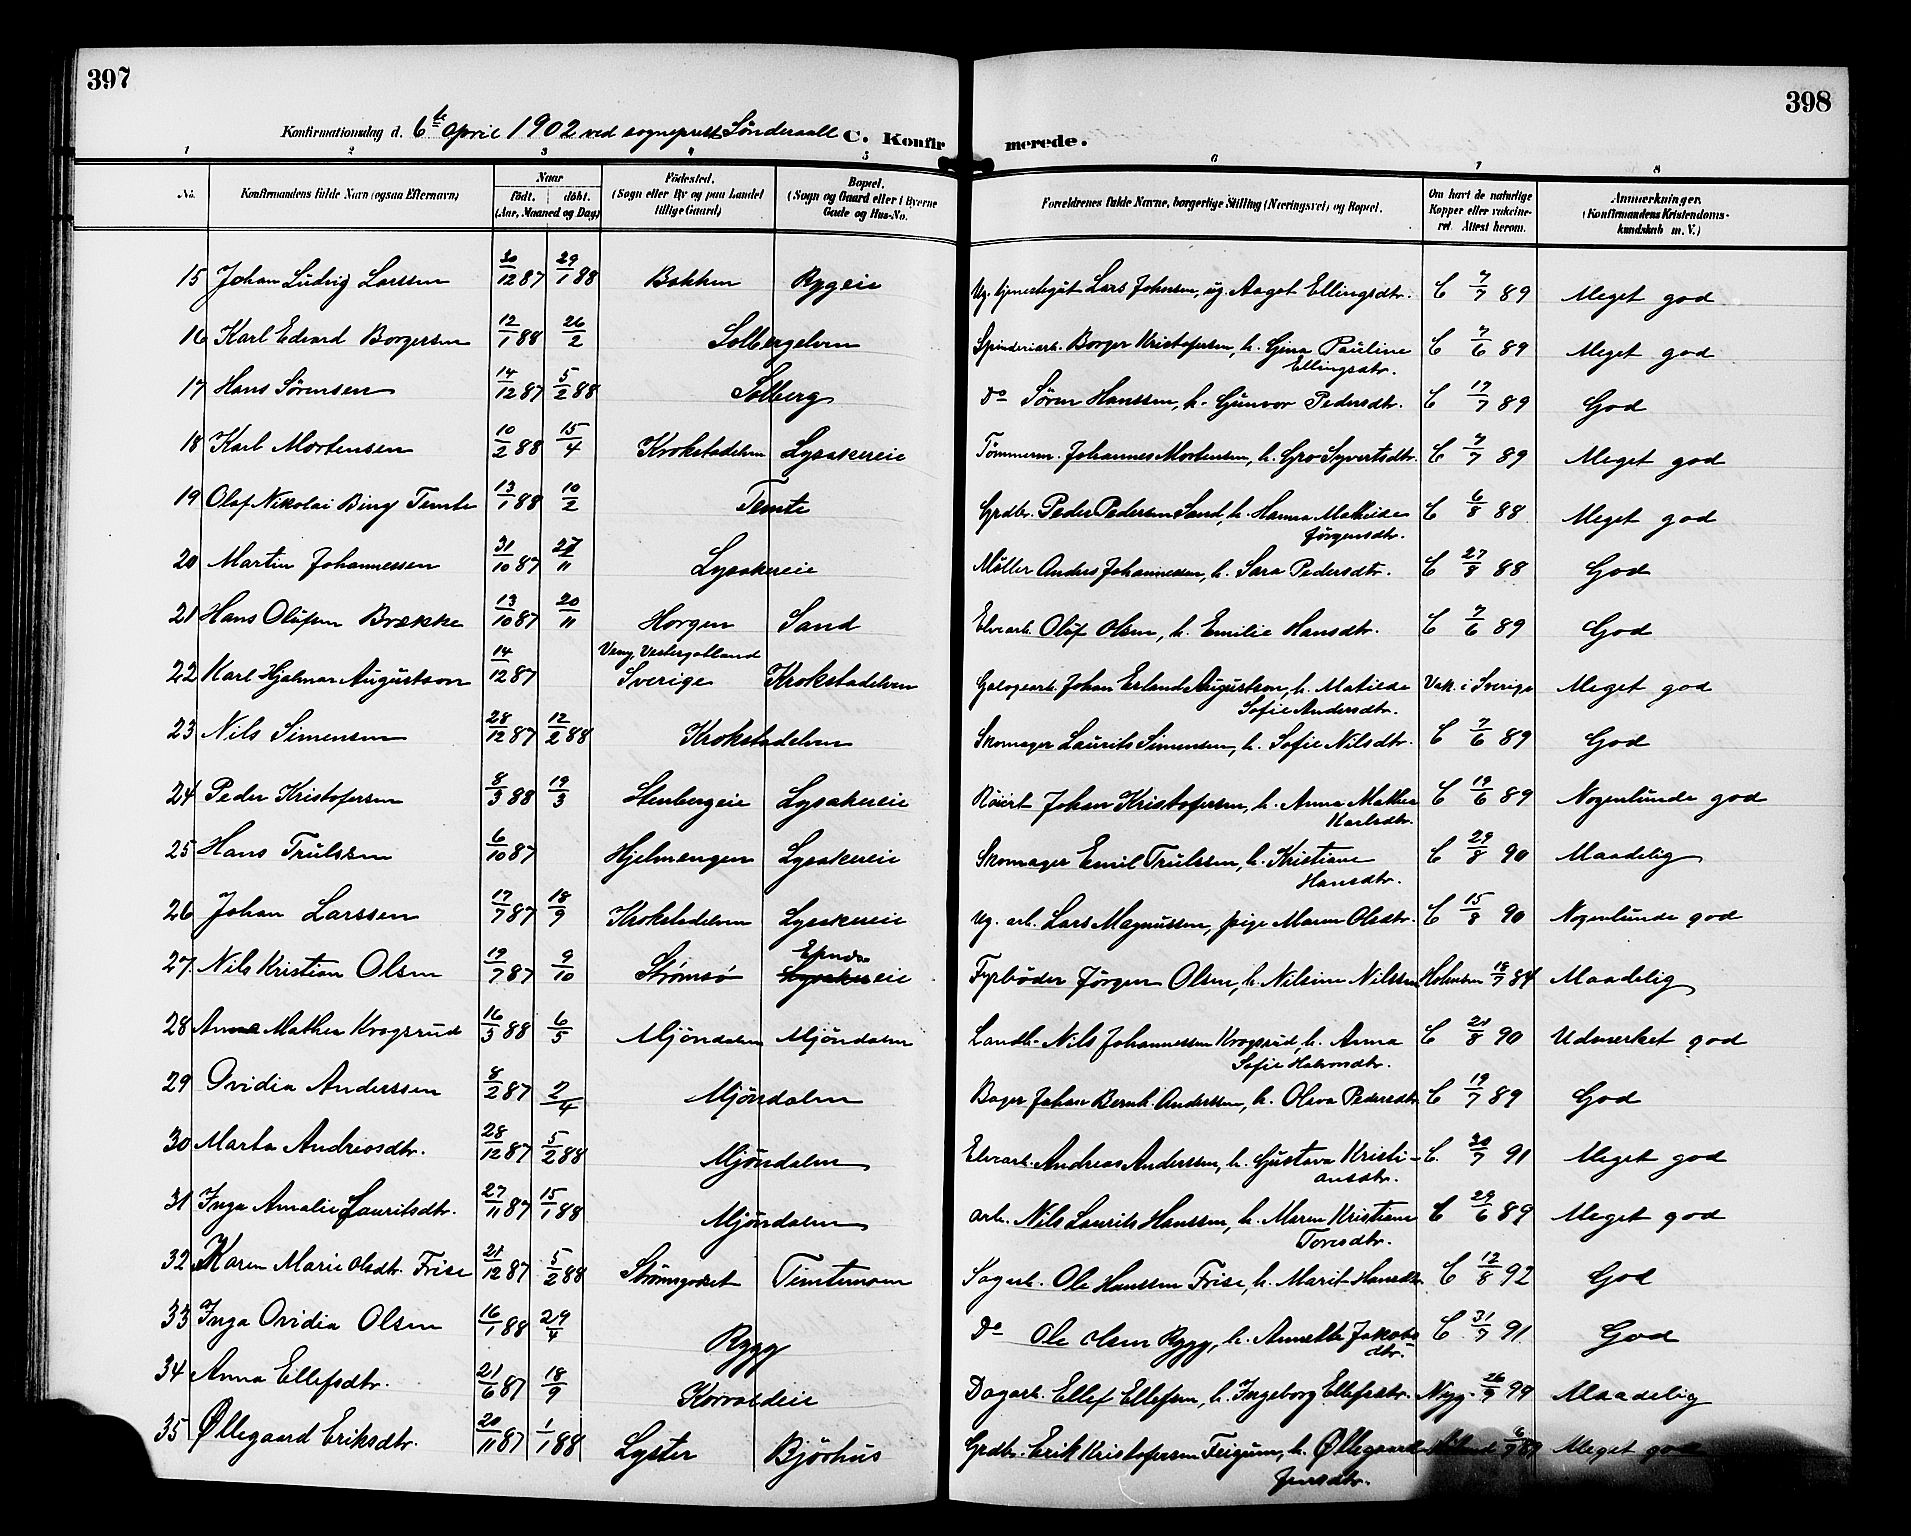 397
398
Konfirmationsdag d. 6te April 1902 ved sogneprest Sønderaall C. Konfirmerede.
1 2 3 4 5 6 7 8
No. Konfirmandens fulde Navn (ogsaa Efternavn) Naar født. døbt. (Aar, Maaned og Dag) Fødested. (Sogn eller By og paa Landet tillige Gaard) Bopæl. (Sogn og Gaard eller i Byerne Gade og Hus-No. Forældrenes fulde Navne, borgerlige Stilling (Næringsvei) og Bopæl. Om havt de naturlige Kopper eller vakcineret. Attest herom. Anmærkninger. (Konfirmandens Kristendomskundskab m. V.)
15 Johan Ludvig Larssen 30/12 87 29/1 88 Bakken Rygeie Ug. tjenestegut Lars Johnsen, ug. Aaget Ellingsdtr. C 7/7 89 Meget god
16 Karl Edvard Borgersen 12/1 88 26/2 Solbergelven Spinderiarb. Borger Kristofersen, h. Gina Pauline Ellingsdtr. C 7/6 89 Meget god
17 Hans Sørensen 14/12 87 5/2 88 Solberg Do Søren Hanssen, h. Gunvor Pedersdtr. C 17/7 89 God
18 Karl Mortensen 10/2 88 15/4 Krokstadelven Lysakereie Tømmerm. Johannes Mortensen, h. Gro Syvertsdtr. C 7/7 89 Meget god
19 Olaf Nikolai Bing Temte 13/1 88 10/2 Temte Grdbr. Peder Pedersen Sand, h. Hanna Mathilde Jørgensdtr. C 6/8 88 Meget god
20 Martin Johannessen 31/10 87 27/11 Lysakereie Møller Anders Johannessen, h. Sara Pedersdtr. C 27/8 88 God
21 Hans Olufsen Brække 13/10 87 20/11 Horgen Sand Elvearb. Oluf Olsen, h. Emilie Hansdtr. C 7/6 89 God
22 Karl Hjalmar Augustson 14/12 87 Veng, Vestergötland Sverige Krokstadelven Johan Erland Augustson, h. Matilde Sofie Andersdtr. Vak. i Sverige Meget god
23 Nils Simensen 28/12 87 12/2 88 Krokstadelven Skomager Laurits Simensen, h. Sofie Nilsdtr. C 7/6 89 God
24 Peder Kristofersen 8/3 88 19/3 Stenbergeie Lysakereie Johan Kristofersen, h. Anna Mathea Karlsdtr. C 19/6 89 Nogenlunde god
25 Hans Trulssen 6/10 87 Hjelmengen Lysakereie Skomager Emil Trulssen, h. Kristiane Hansdtr. C 29/8 90 Maadelig
26 Johan Larssen 17/7 87 18/9 Krokstadelven Lysakereie Ug. arb. Lars Magnussen, pige Maren Olsdtr. C 15/8 90 Nogenlunde god
27. Nils Kristian Olsen 19/7 87 9/10 Strømsø Lysakereie Fyrbøder Jørgen Olsen, h. Nilsine Nilssen 18/7 84 Maadelig
28 Anna Mathea Krogsrud 16/3 88 6/5 Mjøndalen Mjøndalen Landh. Nils Johannessen Krogsrud, h. Anna Sofie Halvorsdtr. C 21/8 90 Udmerket god
29 Ovidia Anderssen 8/2 87 2/4 Mjøndalen Bager Johan Bernh. Anderssen, h. Olava Pedersdtr. C 19/7 89 God
30 Marta Andreasdtr. 28/12 87 5/2 88 Mjøndalen Elvearb. Andreas Anderssen, h. Gustava Kristiansdtr. C. 30/7 91 Meget god
31 Inga Amalie Lauritsdtr. 27/11 87 15/1 88 Mjøndalen arb. Nils Laurits Hanssen, h. Maren Kristiane Toresdtr. C 29/6 89 Meget god
32 Karen Marie Olsdtr. Frise 21/12 87 5/2 88 Strømsgodset Temtemoen Sagarb. Ole Hanssen Frise, h. Marit Hansdtr. C 12/8 92 God
33 Inga Ovidia Olsen 16/1 88 29/4 Rygg Do Ole Olsen Rygg, h. Annette Jakobsdtr. C. 31/7 91 God
34 Anna Ellefsdtr. 21/6 87 18/9 Korvaldeie Dagarb. Ellef Ellefsen, h. Ingeborg Ellefsdtr. Nyg. 26/9 99 Maadelig
35 Øllegaard Eriksdtr. 20/11 87 1/1 88 Lyster Bjørhus Grdbr. Erik Kristofersen Feigum, h. Øllegaard Jensdtr. Meget god